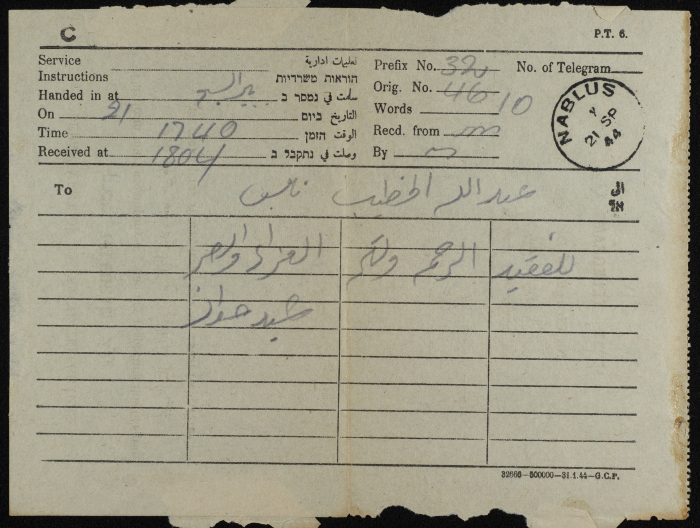 C
P.T. 6.
Service Instructions تعليمات ادارية הוראות משרדיות
Handed in at بئر السبع سلمت في נמסר ב
On 21 التاريخ ביום
Time 1740 الوقت הזמן
Received at 1804 وصلت في נתקבל ב
Prefix No. 320 No. of Telegram
Orig. No. 46
Words 10
Recd. from
By
NABLUS
Y
21 SP
44
To عبد الله الخطيب نابلس الى אל
للفقيد الرحمة ولكم العزاء والصبر
رشيد
32666—500000—31.1.44—G.C.P.